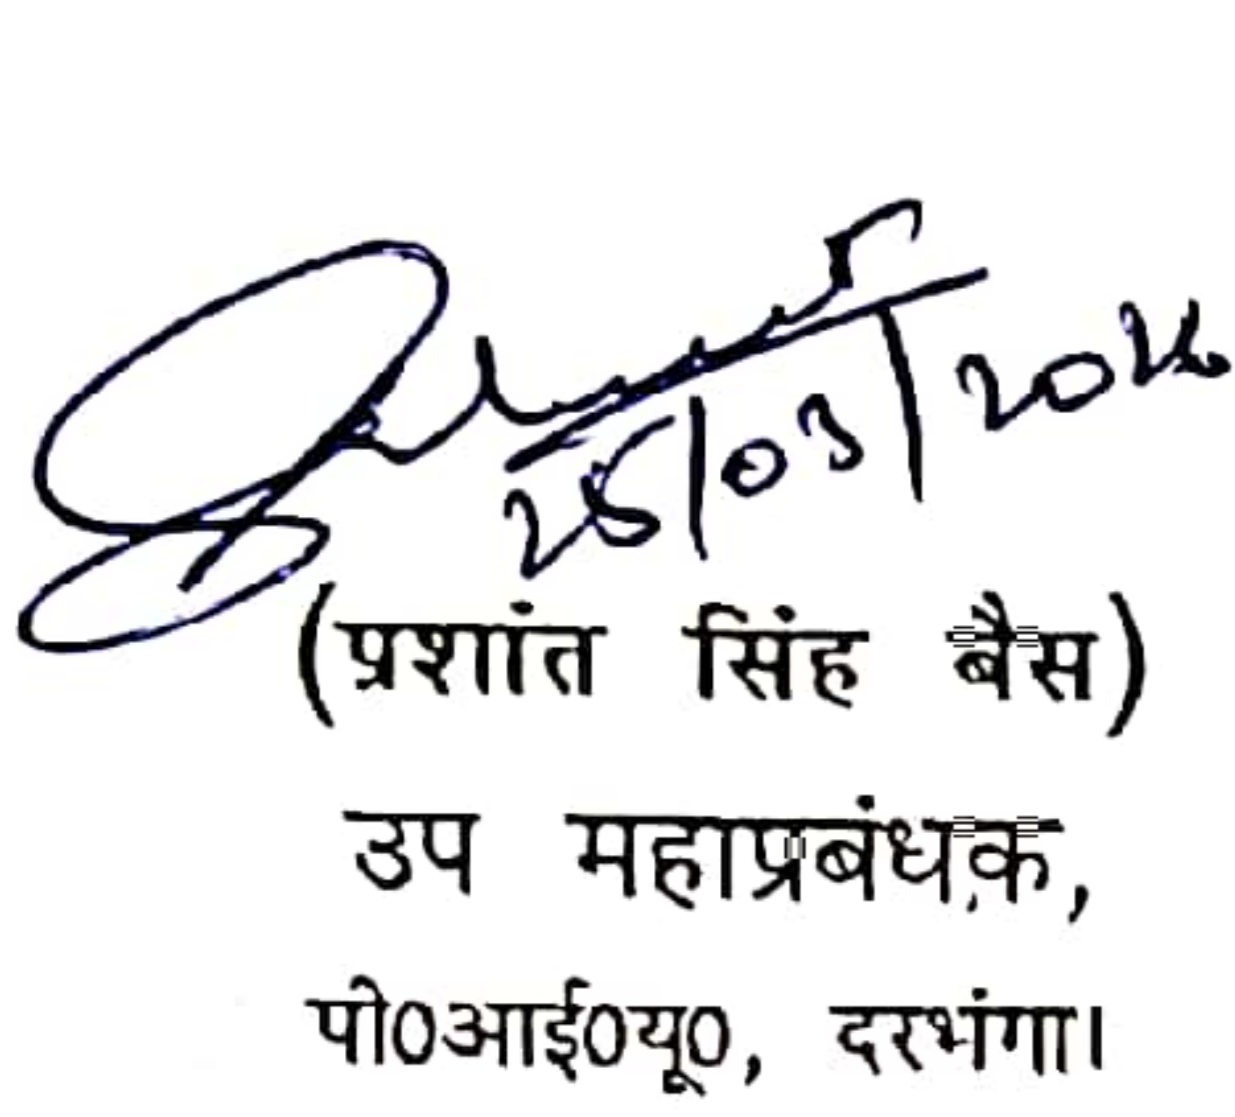 25/03/2026
(प्रशांत सिंह बैस)
उप महाप्रबंधक,
पी0आई0यू0, दरभंगा।